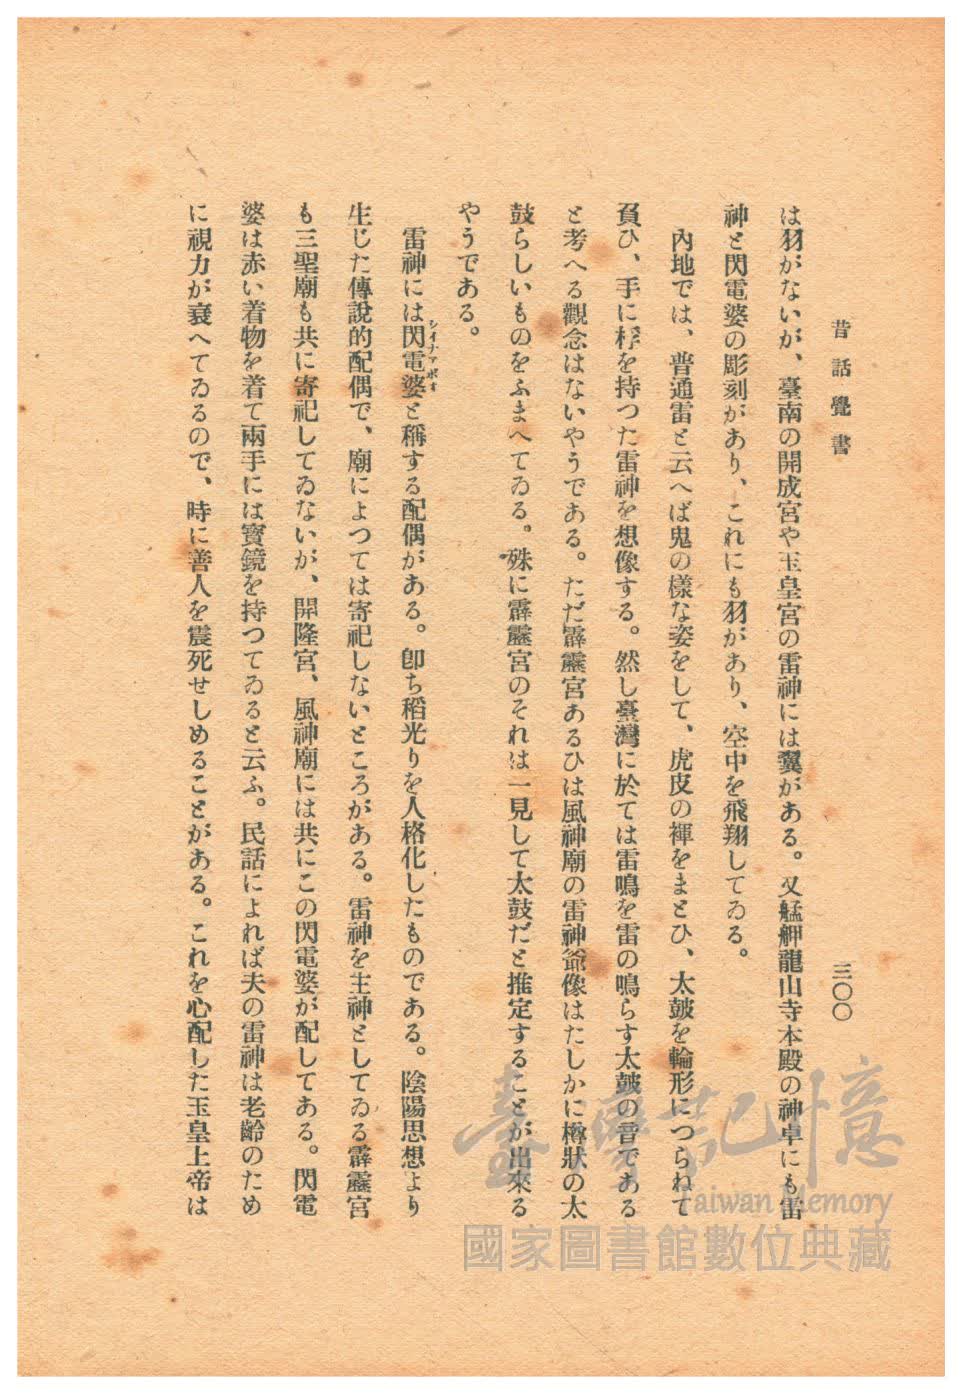 昔話覺書
三〇〇
は羽がないが、臺南の開成宮や玉皇宮の雷神には翼がある。又艋舺龍山寺本殿の神卓にも雷
神と閃電婆の彫刻があり、これにも羽があり、空中を飛翔してゐる。
內地では、普通雷と云へば鬼の樣な姿をして、虎皮の褌をまとひ、太皷を輪形につられて
負ひ、手に桴を持つた雷神を想像する。然し臺灣に於ては雷鳴を雷の鳴らす太皷の音である
と考へる觀念はないやうである。ただ霹靂宮あるひは風神廟の雷神爺像はたしかに樽狀の太
鼓らしいものをふまへてゐる。殊に霹靂宮のそれは一見して太鼓だと推定することが出來る
やうである。
雷神には閃電婆と稱する配偶がある。卽ち稻光りを人格化したものである。陰陽思想より
シイナアポオ
生じた傳說的配偶で、廟によつては寄祀しないところがある。雷神を主神としてゐる霹靂宮
も三聖廟も共に寄祀してゐないが、開隆宮、風神廟には共にこの閃電婆が配してある。閃電
婆は赤い着物を着て兩手には寶鏡を持つてゐると云ふ。民話によれば夫の雷神は老齡のため
に視力が衰へてゐるので、時に善人を震死せしめることがある。これを心配した玉皇上帝は
臺灣記憶
Taiwan Memory
國家圖書館數位典藏